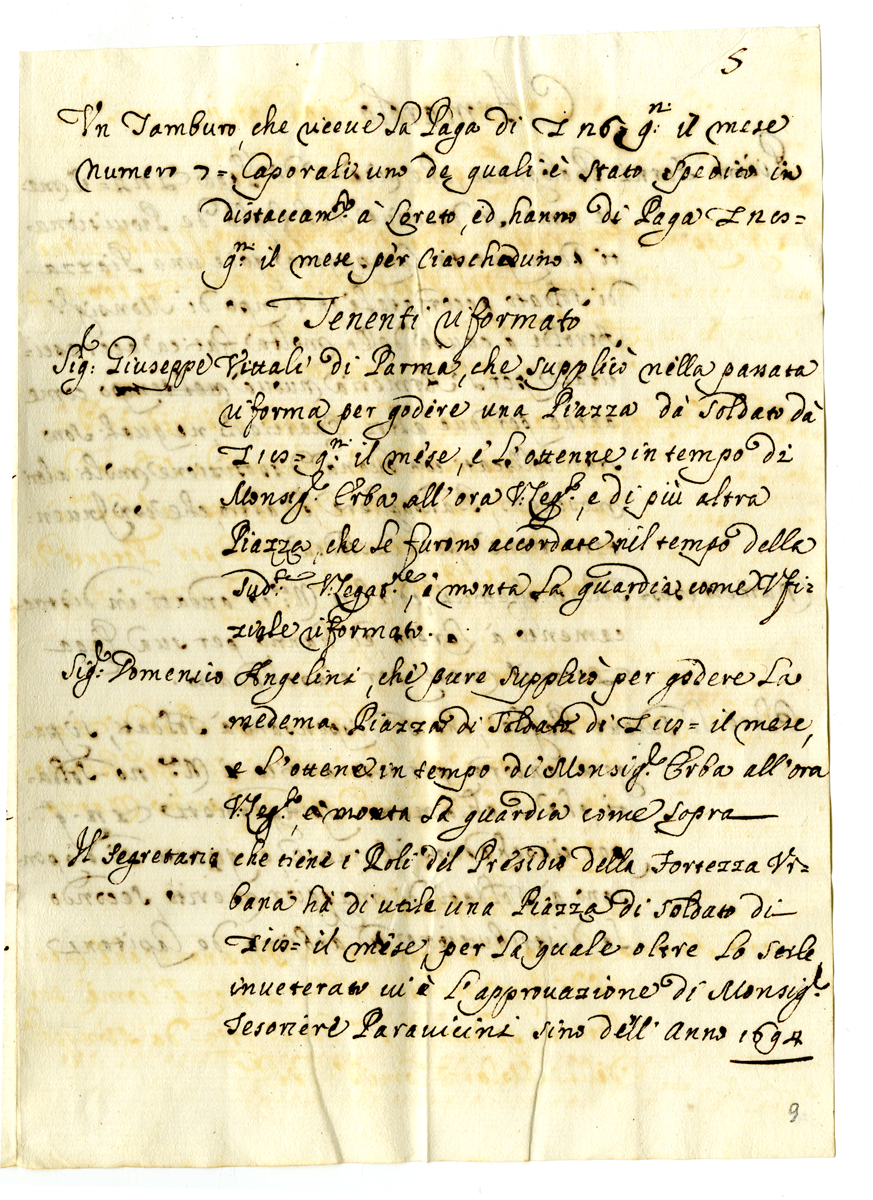 5
Vn Tamburo, che riceve la Paga di qn: il mese
numero 7= Caporali uno de quali è stato spedito in
distaccamto à Loreto, ed hanno di Paga
qn: il mese per Ciascheduno
Tenenti riformato
Sigr: Giuseppe Vittali di Parma, che supplicò nella passata
riforma per godere una Piazza dà Soldato dà
qn: il mese, e l'ottenne in tempo di
Monsigr: Erba all'ora V: Legto, e di più altra
Piazza, che le furono accordate nel tempo della
sudta V: Legatne, e monta la guardia come Vfi-
ziale riformato.
Sigr: Domenico Angelini, che pure supplicò per godere la
medema Piazza di Soldato di il mese,
e l'ottene in tempo di Monsigr: Erba all'ora
V: Legto, e monta la guardia come sopra
Il Segretario che tiene i Roli del Presidio della Fortezza Vr-
bana hà di utile una Piazza di Soldato di
il mese, per la quale oltre lo stile
inueterato ui è l'approuazione di Monsigr:
Tesoriere Parauicini sino dell'Anno 1694
9